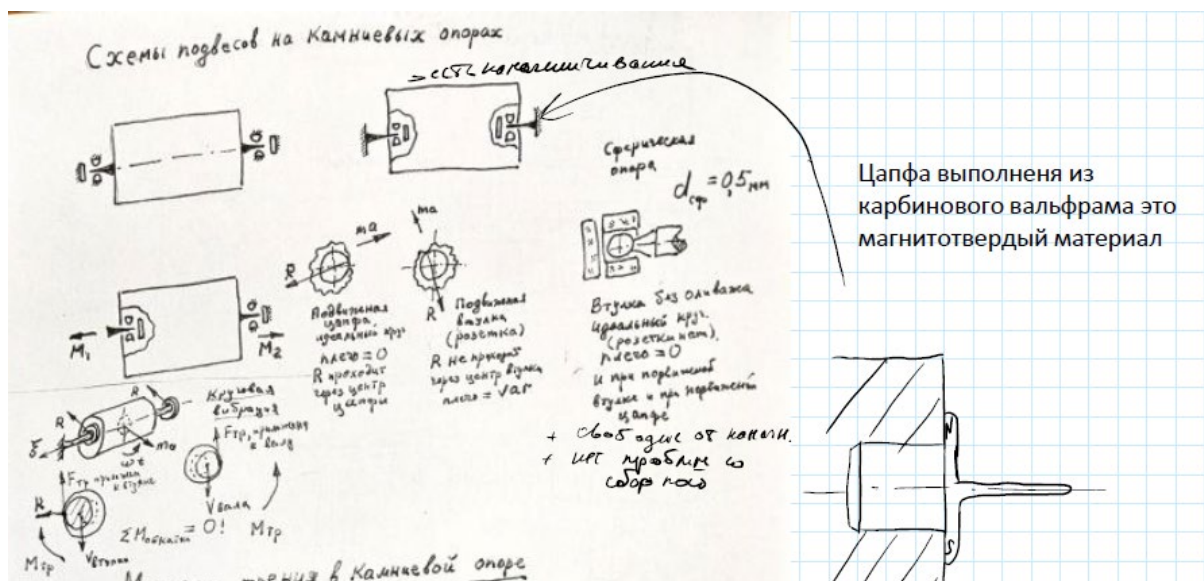 Схемы подвесов на камниевых опорах
есть
Сферическая
опора
d сф = 0,5 мм
Цапфа выполненя из
карбинового вальфрама это
магнитотвердый материал
ma
R
ma
R
Подвижная
цапфа
идеальный круг
плечо = 0
R проходит
через центр
цапфы
Подвижная
втулка
(розетка)
R не проходит
через центр втулки
плечо = var
Втулка без оливажа
идеальный круг
(розетки нет),
плечо = 0
и при подвижной
втулке и при подвижной
цапфе
+ свободне от
+ нет проблем со
M₁
M₂
Круговая
вибрация
R
R
ξ
ma
ωt
Fтр, приложен
к втулке
Fтр, приложен
к валу
R
Vвала
Mтр
ΣMобкатки = 0!
Mтр
Vвтулки
N
S
трения в камниевой опоре